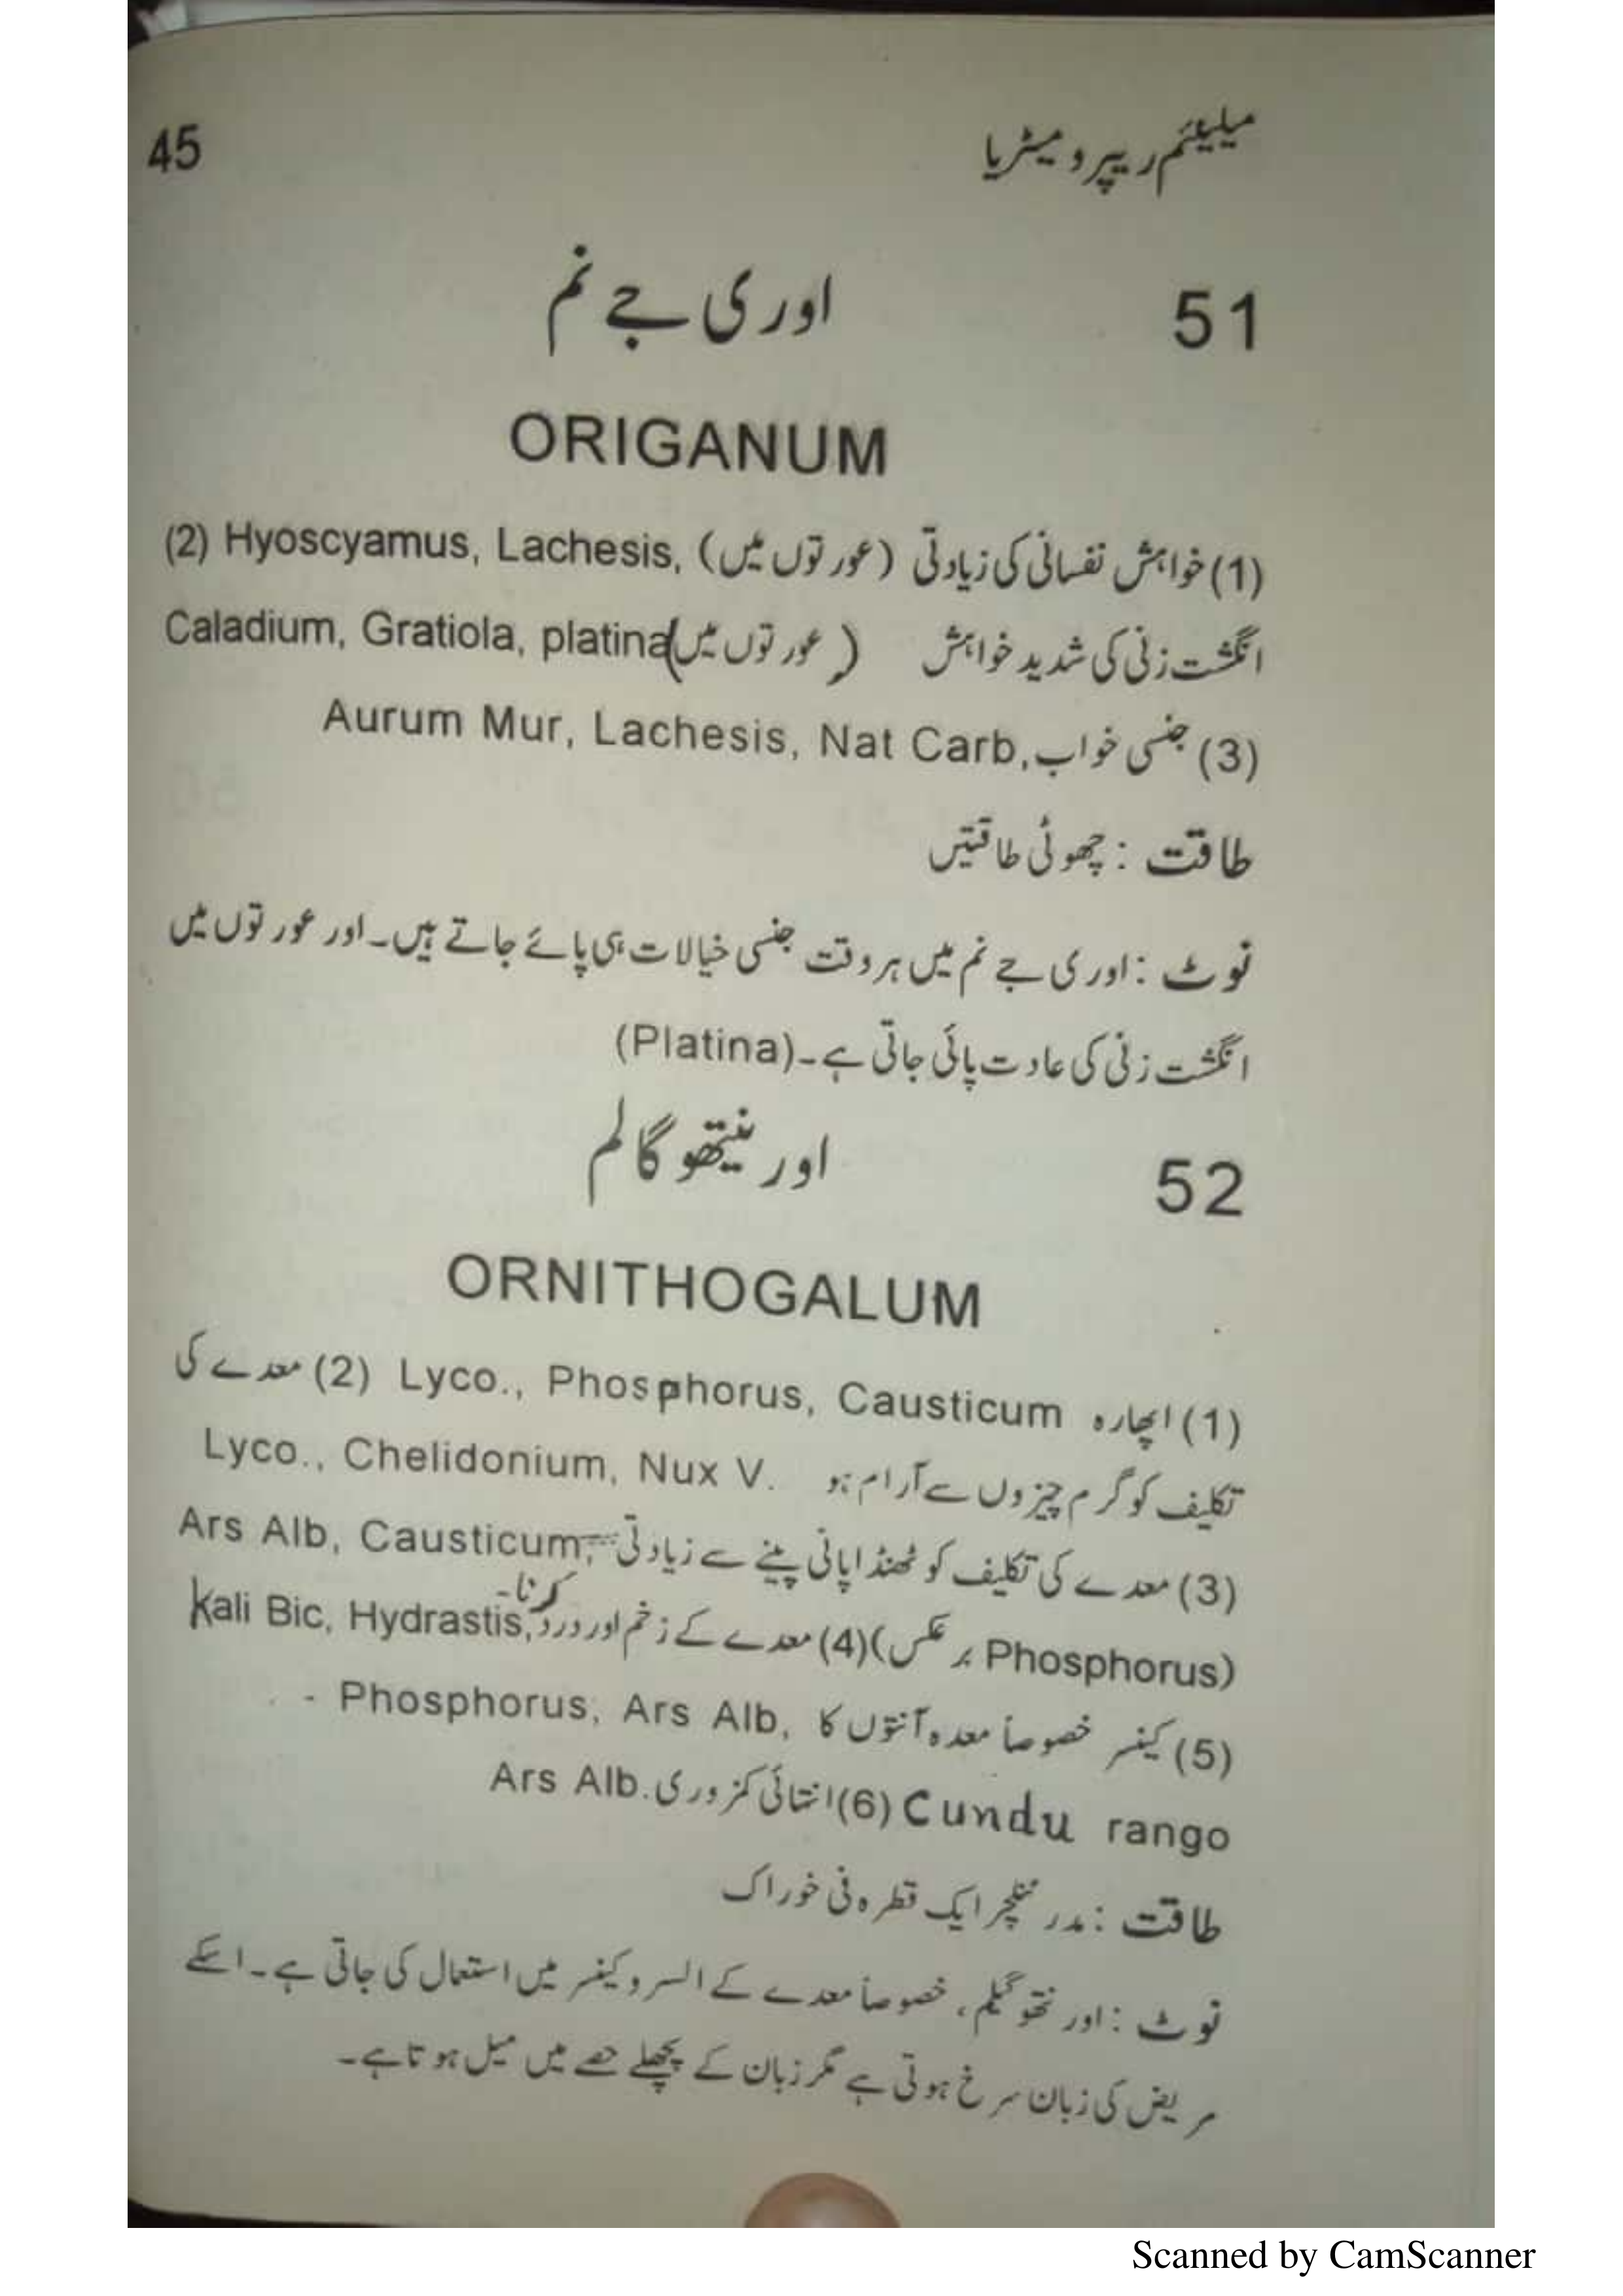 میلینئم ریپرو میٹریا 45
51 اوری جے نم
ORIGANUM
(1) خواہش نفسانی کی زیادتی (عورتوں میں) Hyoscyamus, Lachesis, (2)
انگشت زنی کی شدید خواہش (عورتوں میں) Caladium, Gratiola, platina
(3) جنسی خواب Aurum Mur, Lachesis, Nat Carb,
طاقت : چھوٹی طاقتیں
نوٹ : اوری جے نم میں ہر وقت جنسی خیالات ہی پائے جاتے ہیں۔ اور عورتوں میں
انگشت زنی کی عادت پائی جاتی ہے۔ (Platina)
52 اور نیتھوگالم
ORNITHOGALUM
(1) اپھارہ Lyco., Phosphorus, Causticum (2) معدے کی
تکلیف کو گرم چیزوں سے آرام ہو Lyco., Chelidonium, Nux V.
(3) معدے کی تکلیف کو ٹھنڈا پانی پینے سے زیادتی Ars Alb, Causticum,
(Phosphorus بر عکس) (4) معدے کے زخم اور درد کرنا۔ Kali Bic, Hydrastis,
(5) کینسر خصوصاً معدہ آنتوں کا Phosphorus, Ars Alb, -
Cundu rango (6) انتائی کمزوری Ars Alb.
طاقت : مدر ٹنکچر ایک قطرہ فی خوراک
نوٹ : اور نتھوگیلم، خصوصاً معدے کے السر و کینسر میں استعمال کی جاتی ہے۔ اسکے
مریض کی زبان سرخ ہوتی ہے مگر زبان کے پچھلے حصے میں میل ہوتا ہے۔
Scanned by CamScanner